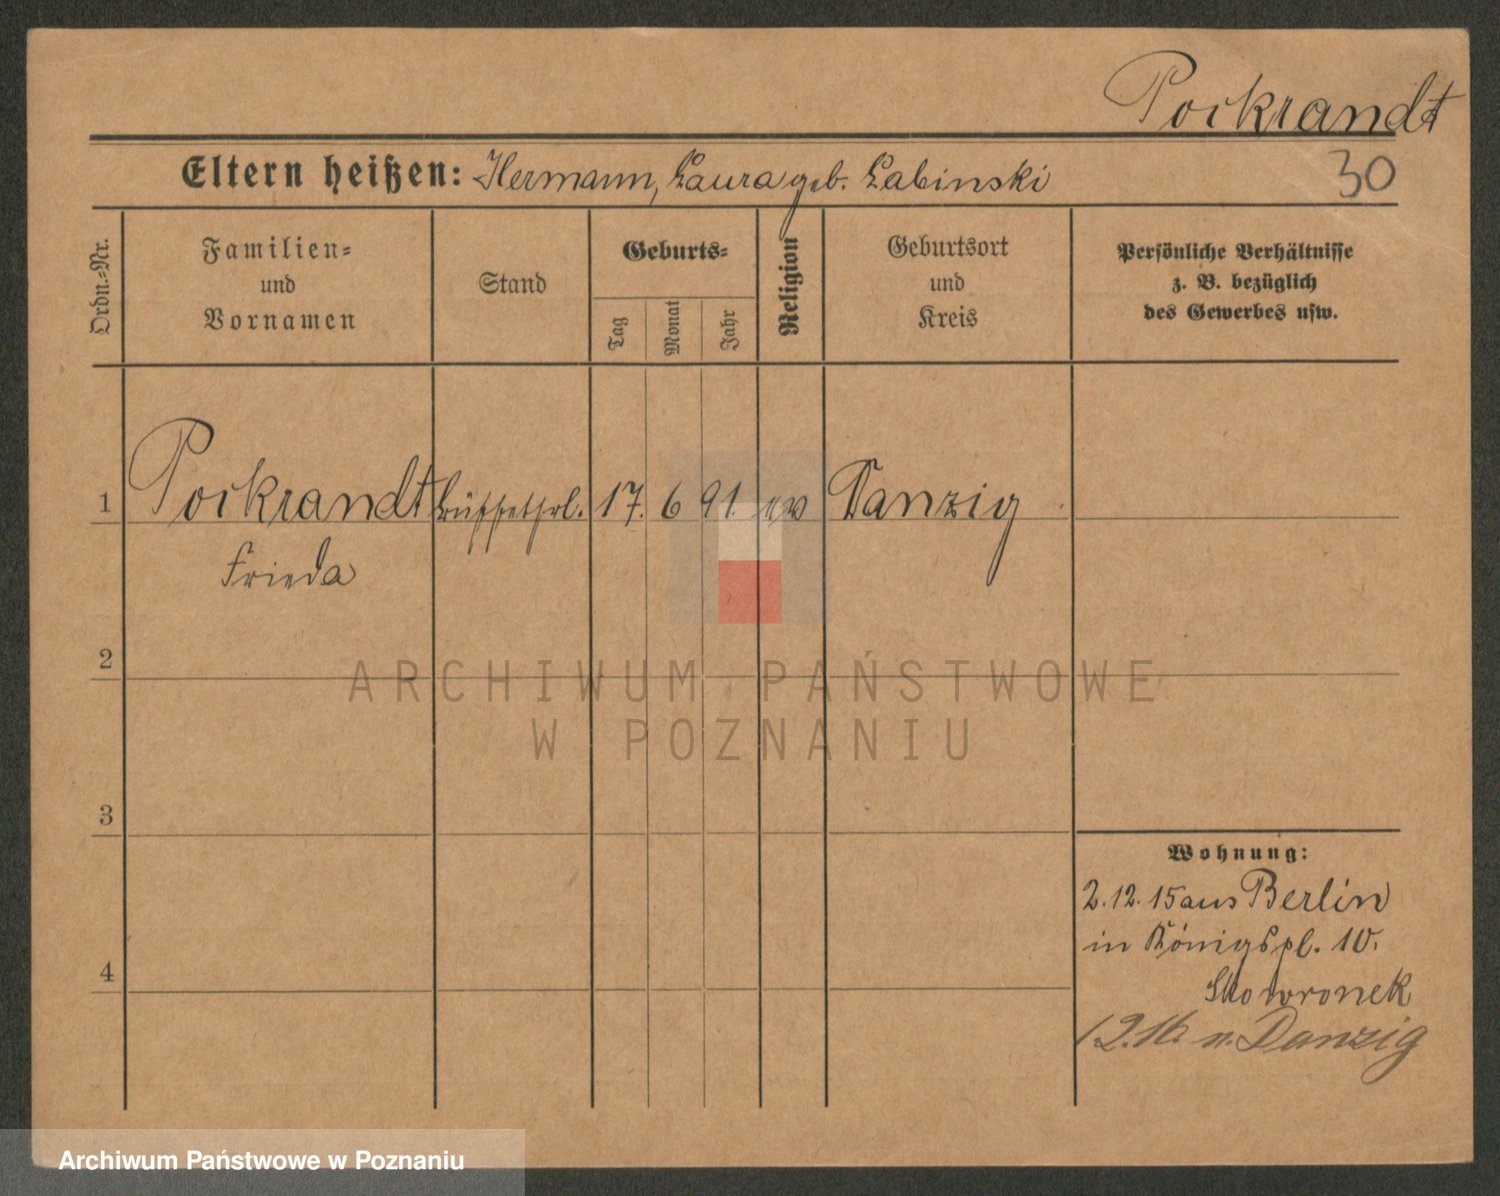 Pockrandt
Eltern heißen: Hermann, Laura geb. Labinski
30
Ordn.-Nr.
Familien-
und
Vornamen
Stand
Geburts-
Tag
Monat
Jahr
Religion
Geburtsort
und
Kreis
Persönliche Verhältnisse
z. B. bezüglich
des Gewerbes usw.
1 Pockrandt Büffetfrl. 17. 6 91. ev Danzig
Frieda
2
ARCHIWUM PAŃSTWOWE
W POZNANIU
3
Wohnung:
2.12.15 aus Berlin
in Königspl. 10.
4
Skowronek
1.2.16. n. Danzig
Archiwum Państwowe w Poznaniu